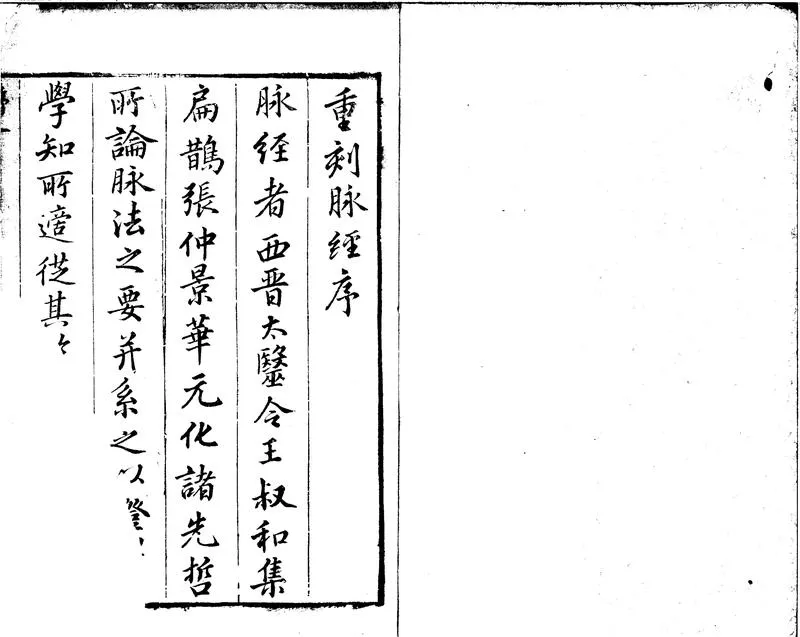 重刻脉經序
脉経者西晋太醫令王叔和集
扁鵲張仲景華元化諸先哲
所論脉法之要并系之以
學知所適從其